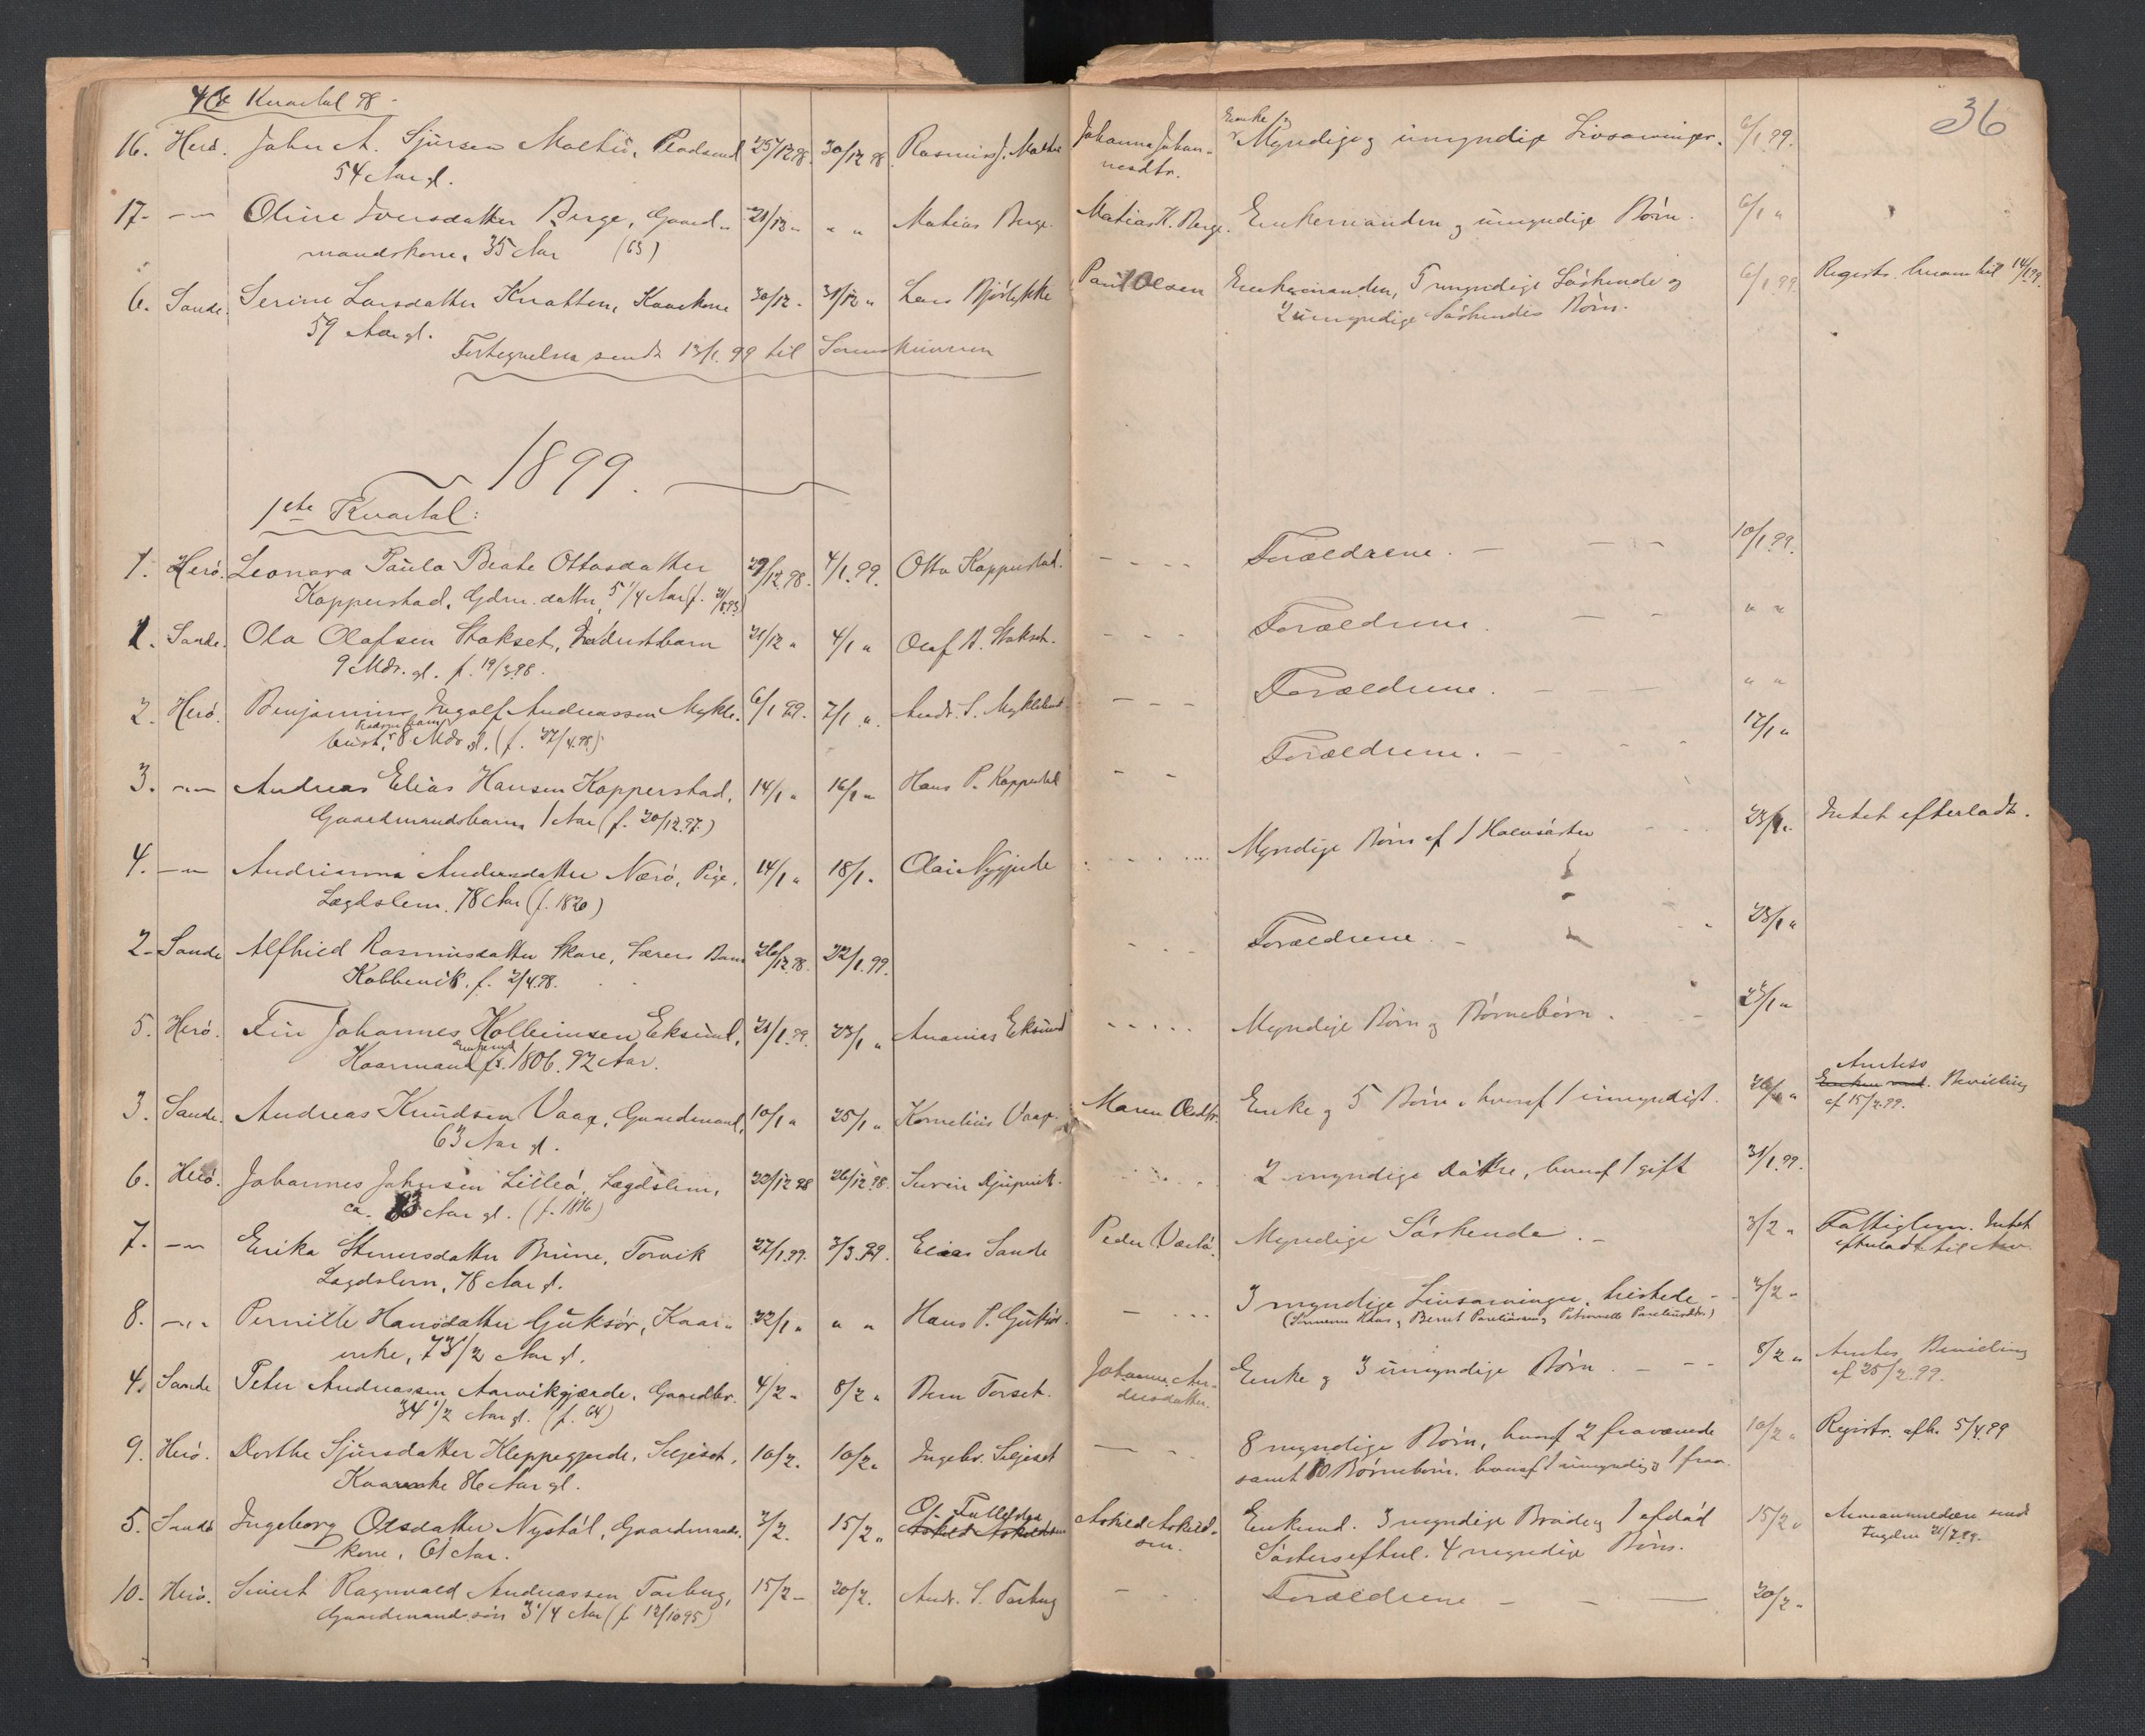 4de Kvartal 98
36
16. Herö. John A. Sjursen Moltu, Pladsmd 25/12 98. 30/12 98. Rasmus J. Moltu Johanna Johan- Enke, Myndige og umyndige Livsarvinger. 6/1 99.
54 Aar gl. nesdtr.
17. -"- Oline Iversdatter Berge, Gaard- 21/12 " " " Matias Berge Matias K. Berge. Enkemanden og umyndige Börn. 6/1 "
mandskone, 35 Aar (63)
6. Sande. Serine Larsdatter Knotten, Kaarkone 30/12 - 31/12 " Lars Björlykke Paul Olsen Enkemanden, 5 myndige Söskende og 6/1 99. Registr. 14/1 99.
59 Aar gl. 2 umyndige Söskendes Börn.
Fortegnelse sendt 13/1. 99 til Sorenskriveren
1899.
1ste Kvartal:
1. Herö. Leonora Paula Beate Ottosdatter 29/12 98. 4/1. 99. Otto Kopperstad. - - - - Forældrene. - - - 10/1 99.
Kopperstad, Gdm. datter, 5 1/4 Aar (f. 93)
1. Sande. Ola Olafsen Stokset, Inderstbarn 21/12 " 4/1 " Olaf A. Stokset. - - - Forældrene. - - " "
9 Mdr. gl. f. 19/3 98.
2. Herö. Benjamin Ingolf Andreassen Mykle- 6/1 99. 7/1 ". Andr. S. Myklebust - - - Forældrene. - - - " "
bust, 8 Mdr gl. (f. 4. 98.)
3. -"- Andreas Elias Hansen Kopperstad, 14/1 " 16/1 " Hans P. Kopperstad - - Forældrene. - - - 17/1 "
Gaardmandsbarn 1 Aar (f. 20/12 97.)
4. -"- Andrianna Andersdatter Nærö, Pige, 14/1 " 18/1 " Olai Nygjerde - - - Myndige Börn af 1 Halvsöster 23/1. Intet efterladt.
Lægdslem. 78 Aar (f. 1820)
2. Sande Alfhild Rasmusdatter Skare, Lærers Barn 26/12 98. 22/1. 99. - - - Forældrene. - 23/1 "
Kobbevik. f. 2/4 98.
5. Herö. Fin Johannes Kolbeinsen Eksund, 21/1. 99. 23/1 " Ananias Eksund - - - - - Myndige Börn og Börnebörn. - 23/1 "
Kaarmand f. 1806. 92 Aar.
3. Sande. Andreas Knudsen Vaag, Gaardmand, 10/1 " 25/1 " Kornelius Vaag. Maren Olsdtr. Enke og 5 Börn, hvoraf 1 umyndigt. 26/1 " Amtets Bevilling
63 Aar gl. af 15/2. 99.
6. Herö. Johannes Johnsen Lilleö, Lægdslem, 22/12 98 26/12 98. Severin Djupvik. - - - 2 myndige Döttre, hvoraf 1 gift 31/1. 99.
ca. 83 Aar gl. (f. 1816)
7. -"- Erika Steinersdatter Brune, Torvik 27/1. 99. 3/3. 99. Elias Sande Peder Vartö. Myndige Söskende. - 3/2 " Fattiglem. Intet
Lægdslem, 78 Aar gl. efterladt til Arv.
8. -"- Pernille Hansdatter Gjuksör, Kaar- 22/1 " " " Hans P. Gjuksör. - - - 3 myndige Livsarvinger, - 3/2 -
enke, 73 1/2 Aar gl.
4. Sande Peter Andreassen Aarvikgjærde, Gaardbr. 4/2 - 8/2 " Bern Torset. Johanna An- Enke og 3 umyndige Börn. - - 8/2 " Amtets Bevilling
34 1/2 Aar gl. (f. 64) dersdatter. af 25/2. 99.
9. Herö. Dorthe Sjursdatter Kleppegjerde, Seljeset, 10/2. 10/2 " Ingebr. Seljeset - - 8 myndige Börn, hvoraf 2 fraværende 10/2 " Registr. afh. 5/4 99
Kaarenke 86 Aar gl. samt 10 Börnebörn. hvoraf 1 umyndig og 1 frav.
5. Sande Ingeborg Olsdatter Nystöl, Gaardmands- 3/2. 15/2 " Askild Askild- Enkemd. 3 myndige Bröder, 1 afdöd 15/2 " sendt
kone, 61 Aar. sen. Sösters efterl. 4 myndige Börn. Fogden
10. Herö. Sivert Ragnvald Andreassen Tarberg, 15/2 - 20/2. Andr. S. Tarberg - - Forældrene - - - 20/2 -
Gaardmandssön 3 1/4 Aar (f. 12/10 95)